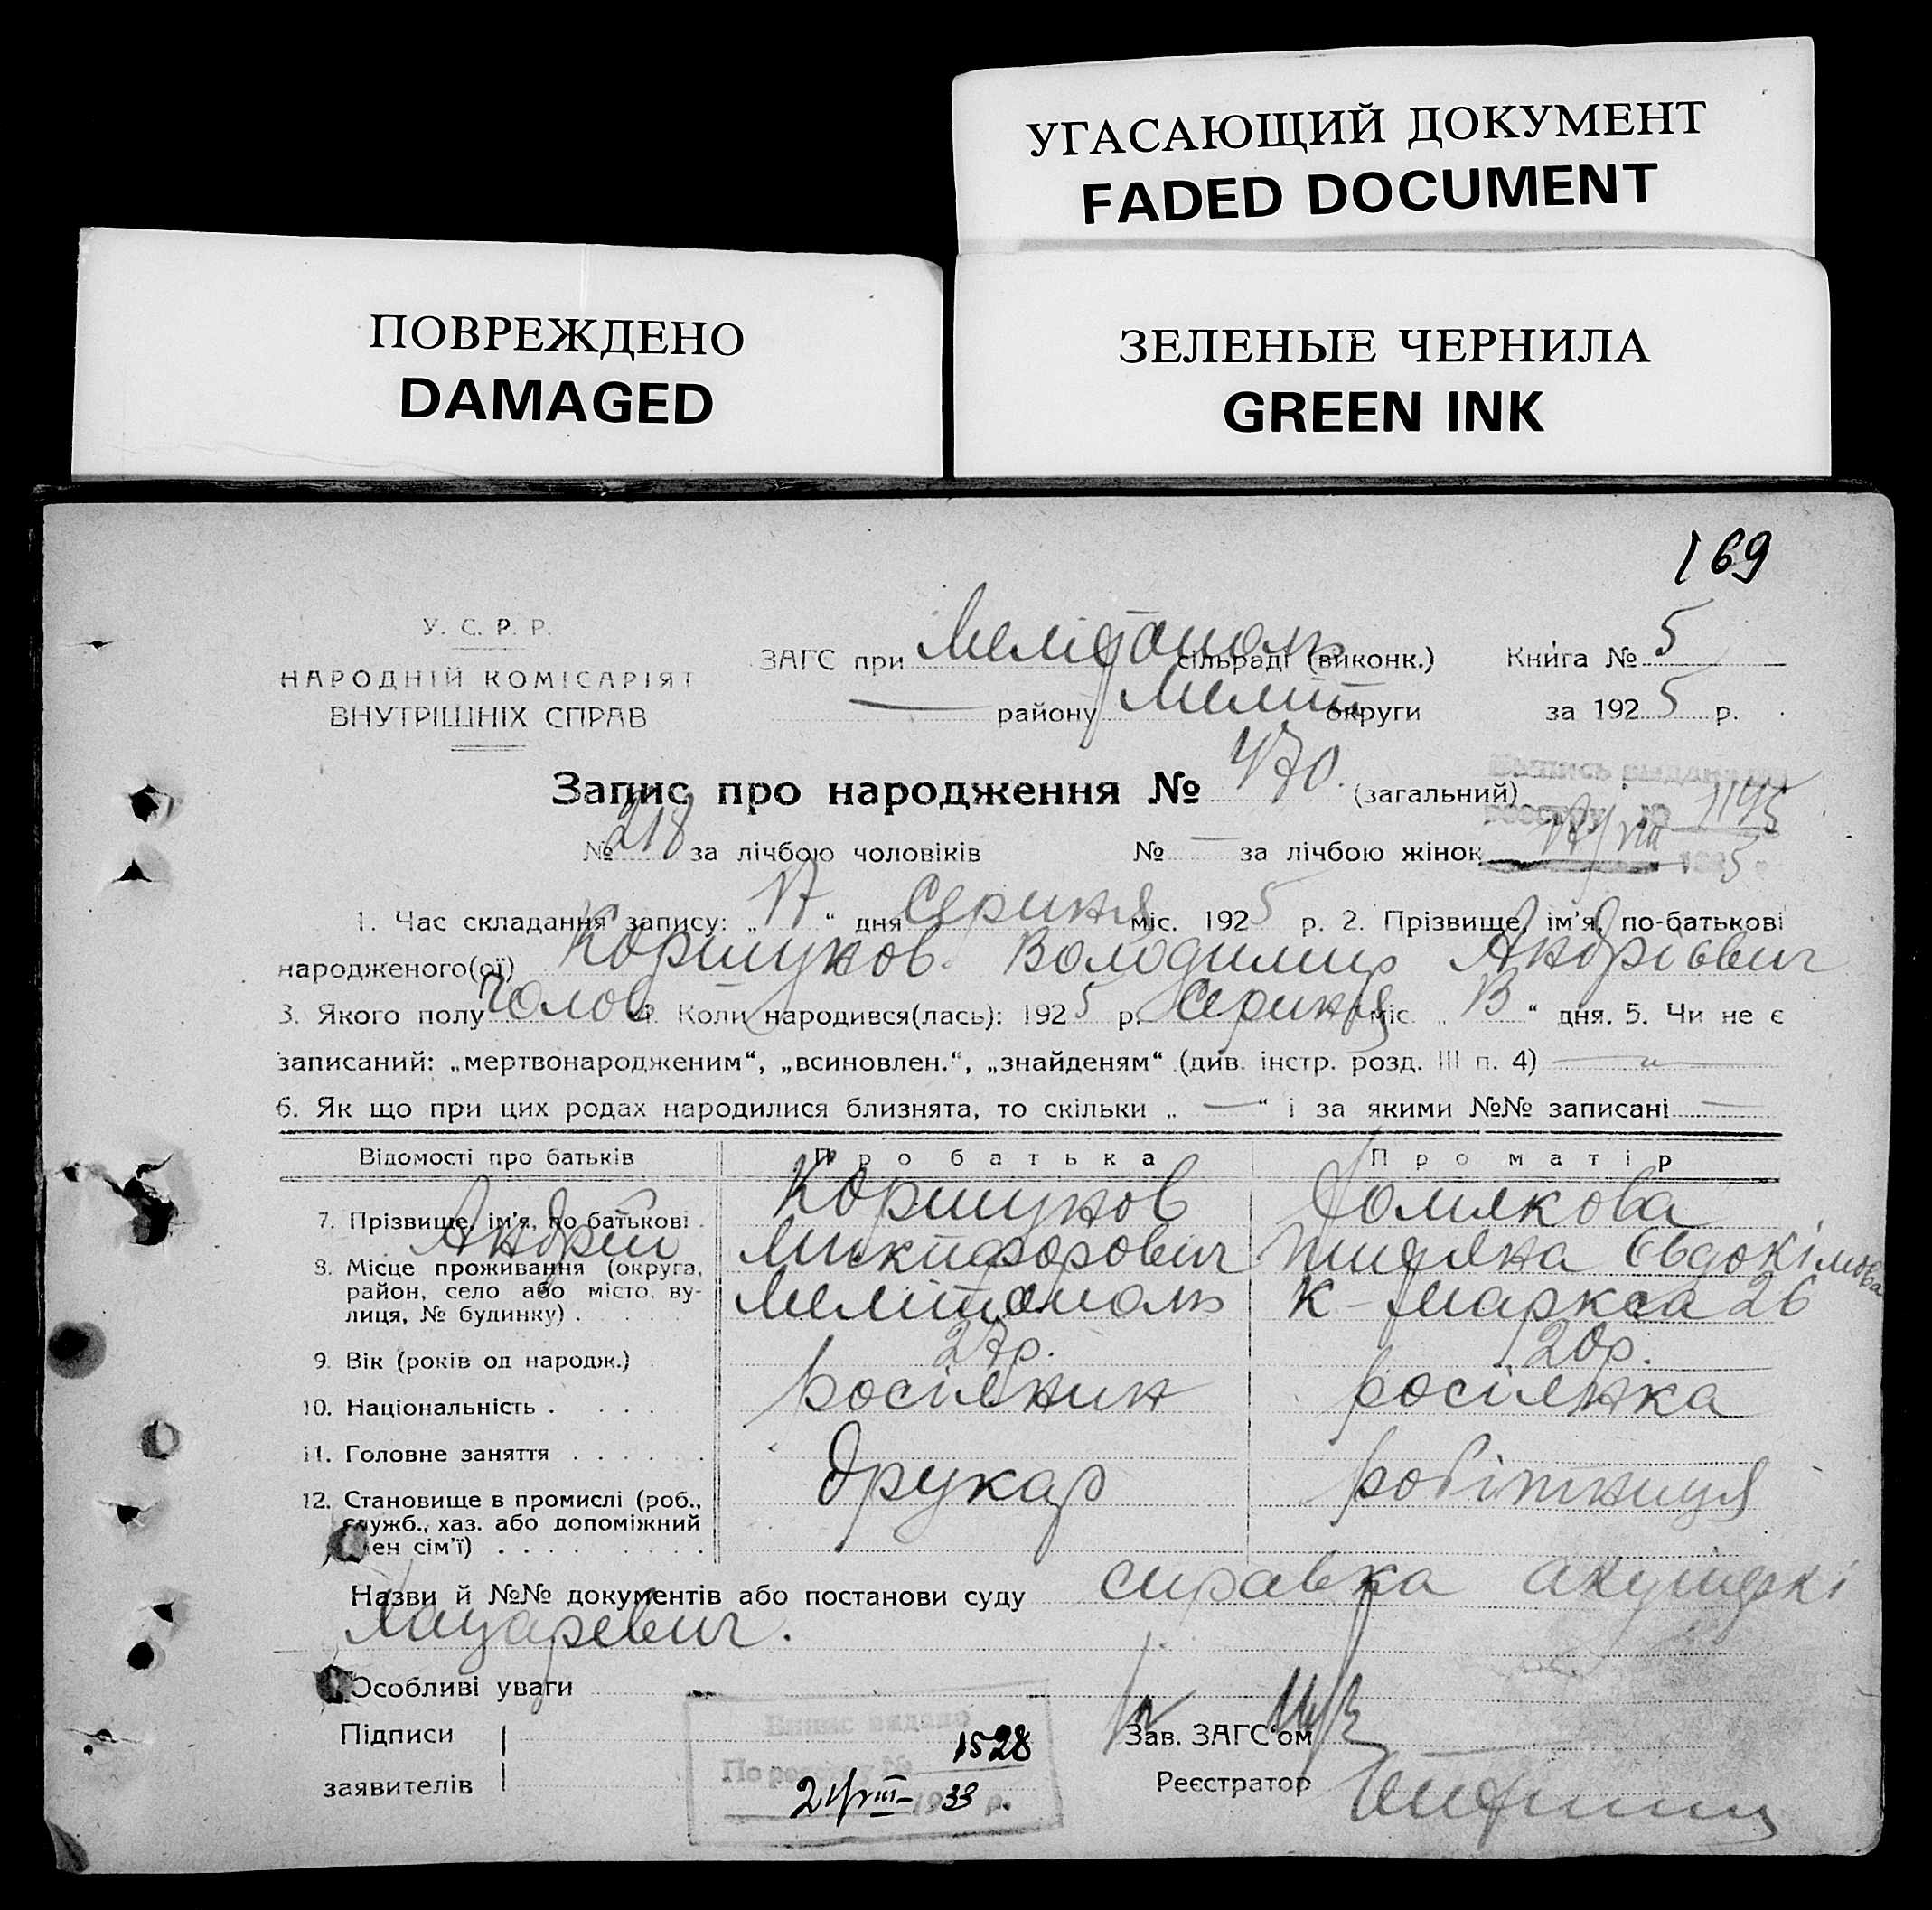 УГАСАЮЩИЙ ДОКУМЕНТ
FADED DOCUMENT
ПОВРЕЖДЕНО
DAMAGED
ЗЕЛЕНЫЕ ЧЕРНИЛА
GREEN INK
169
У. С. Р. Р.
НАРОДНІЙ КОМІСАРІЯТ
ВНУТРІШНІХ СПРАВ
ЗАГС при Мелітополь сільраді (виконк.) Книга № 5
— району Меліт округи за 1925 р.
Запис про народження № 470. (загальний)
№ 218 за лічбою чоловіків № — за лічбою жінок
1145
17/VIII 5
1. Час складання запису: „17“ дня Серпня міс. 1925 р. 2. Прізвище, ім’я, по-батькові
народженого(ої) Коршунов Володимир Андрієвич
3. Якого полу Чолов 4. Коли народився(лась): 1925 р. Серпня міс. „ “ дня. 5. Чи не є
записаний: „мертвонародженим“, „всиновлен.“, „знайденям“ (див. інстр. розд. III п. 4) — „ —
6. Як що при цих родах народилися близнята, то скільки „ — “ і за якими №№ записані —
Відомості про батьків Про батька Про матір
7. Прізвище, ім’я, по батькові . Коршунов
Андрій Микифорович Евдокімова
8. Місце проживання (округа, район, село або місто, вулиця, № будинку) . Мелітополь К-Маркса 26
9. Вік (років од народж.) . 27р. 20р.
10. Національність . . . . росіянин росіянка
11. Головне заняття . . . . . .
12. Становище в промислі (роб., служб., хаз. або допоміжний член сім’ї) . . . . друкар робітниця
Назви й №№ документів або постанови суду справка акушеркі
Лацаревич.
Особливі уваги
Підписи
заявителів
Випис видано
По реєстру № 1528
1933 р.
Зав. ЗАГС’ом
Реєстратор